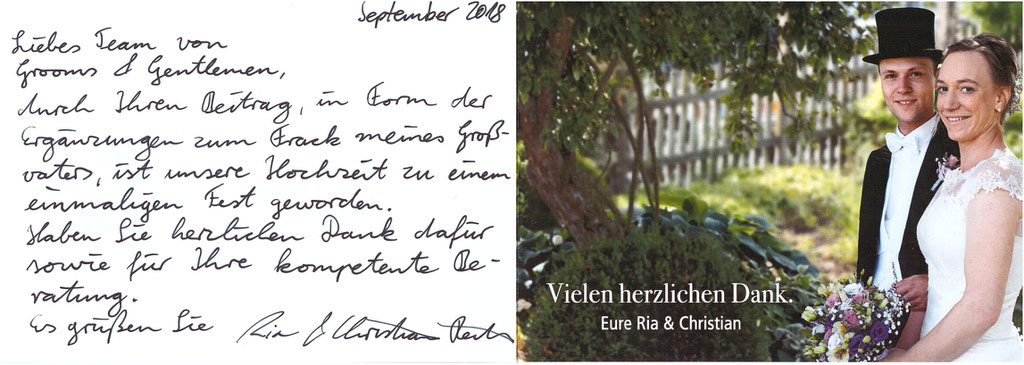 September 2018
Liebes Team von
Grooms & Gentlemen,
durch Ihren Beitrag, in Form der
Ergänzungen zum Frack meines Groß-
vaters, ist unsere Hochzeit zu einem
einmaligen Fest geworden.
Haben Sie herzlichen Dank dafür
sowie für Ihre kompetente Be-
ratung.
Es grüßen Sie Ria & Christian
Vielen herzlichen Dank.
Eure Ria & Christian